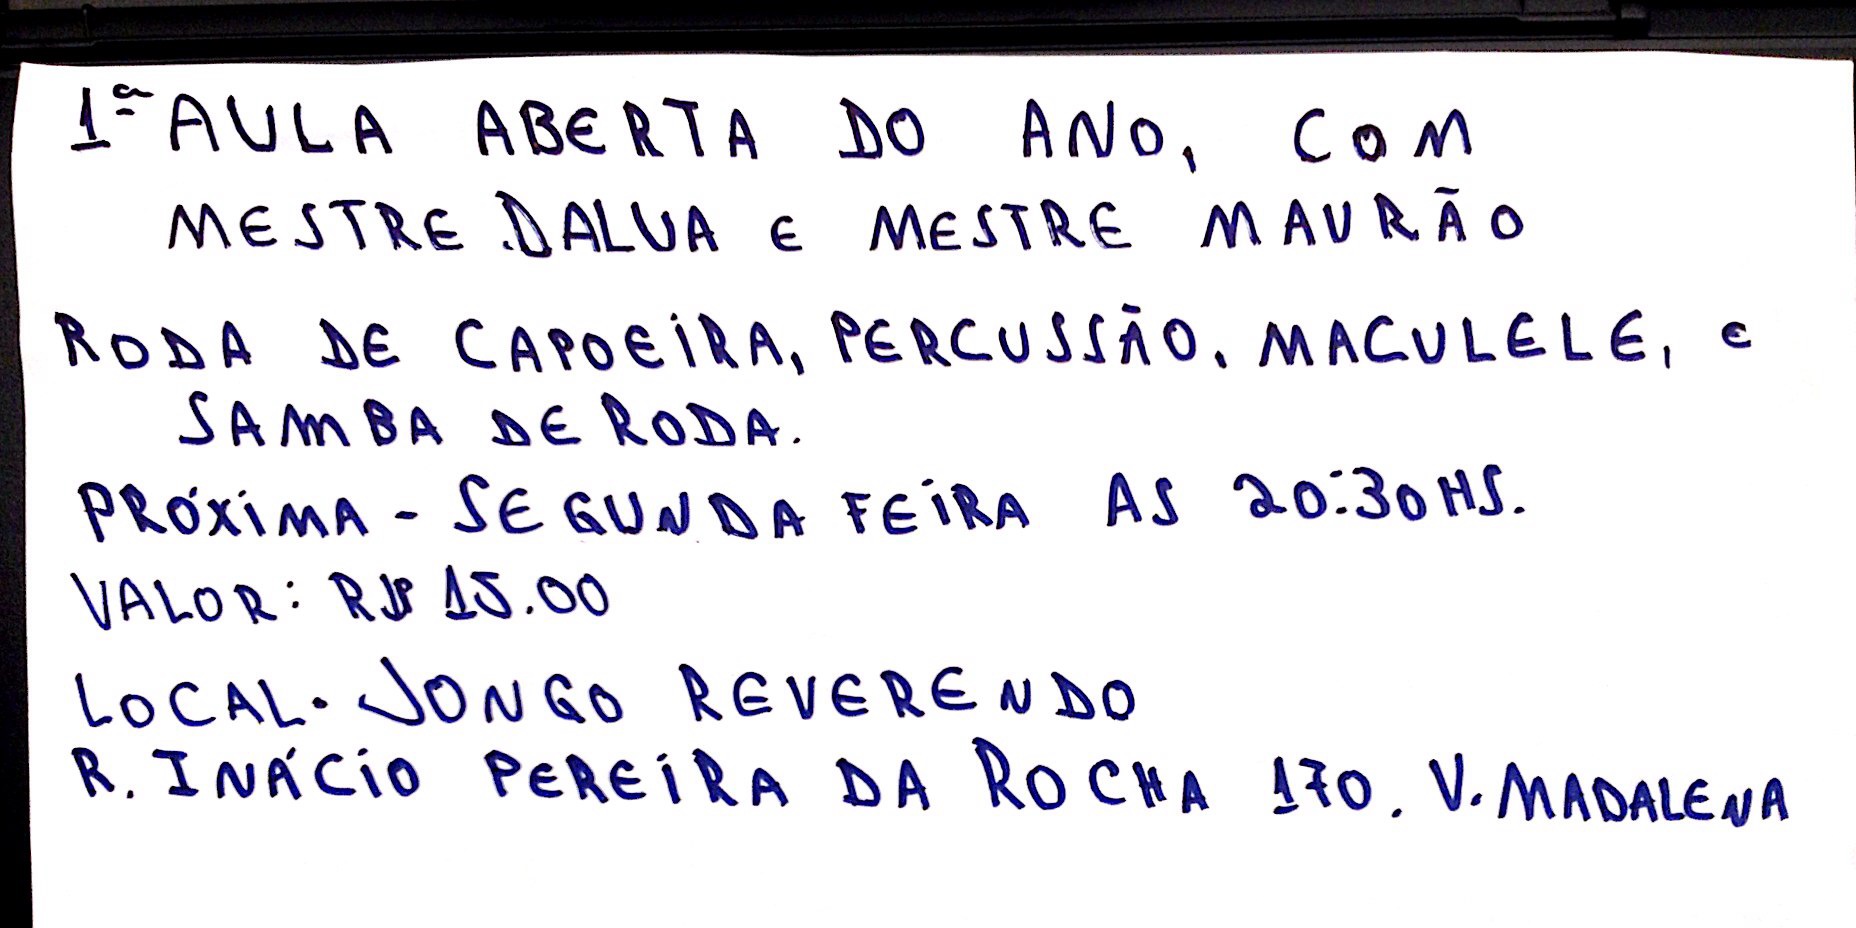 1ª AULA ABERTA DO ANO, COM
MESTRE DALUA E MESTRE MAURÃO
RODA DE CAPOEIRA, PERCUSSÃO. MACULELE, E
SAMBA DE RODA.
PRÓXIMA - SEGUNDA FEIRA AS 20:30HS.
VALOR: R$ 15.00
LOCAL. JONGO REVERENDO
R. INÁCIO PEREIRA DA ROCHA 170. V. MADALENA